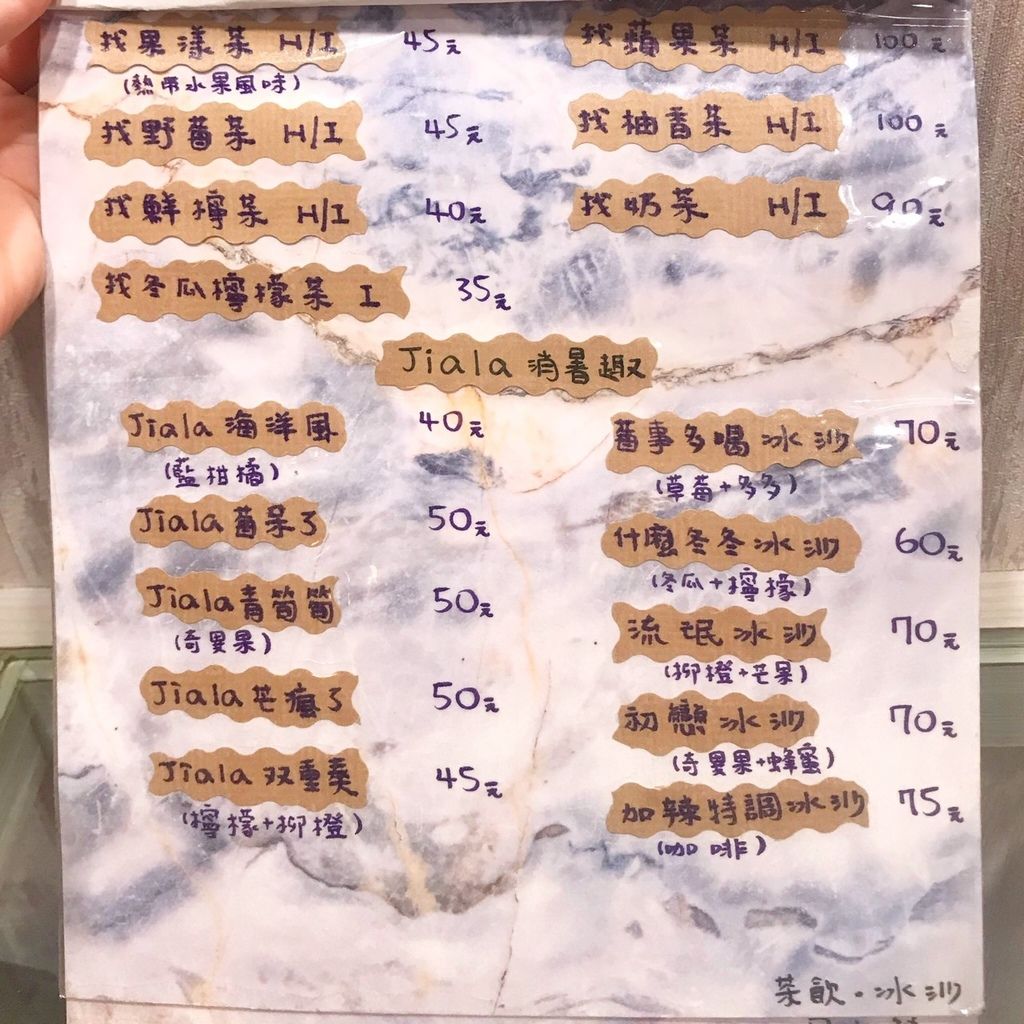 找果漾茶 H/I 45元
(熱帶水果風味)
找野莓茶 H/I 45元
找鮮檸茶 H/I 40元
找冬瓜檸檬茶 I 35元
找蘋果茶 H/I 100元
找柚香茶 H/I 100元
找奶茶 H/I 90元
Jiala 消暑趣
Jiala 海洋風 40元
(藍柑橘)
Jiala 莓呆了 50元
Jiala 青筍筍 50元
(奇異果)
Jiala 芒瘋了 50元
Jiala 双重奏 45元
(檸檬+柳橙)
莓事多喝冰沙 70元
(草莓+多多)
什麼冬冬冰沙 60元
(冬瓜+檸檬)
流氓冰沙 70元
(柳橙+芒果)
初戀冰沙 70元
(奇異果+蜂蜜)
加辣特調冰沙 75元
(咖啡)
茶飲·冰沙